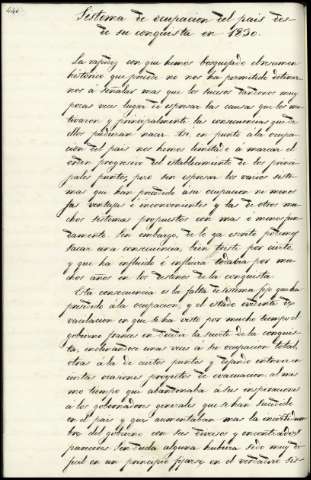 Sistema de ocupacion del pais des-
de su conquista en 1830.
La rapidez con que hemos bosquejado el resumen
historico que precede no nos ha permitido detener-
nos á señalar mas que los sucesos dandonos muy
pocas veces lugar de espresar las causas que los mo-
tivaron y principalmente las consecuencias que de
ellos pudieran nacer. Asi, en punto á la ocupa-
cion del pais nos hemos limitado á marcar el
orden progresivo del establecimiento de los princi-
pales puntos, pero sin espresar los varios siste-
mas que han presidido á su ocupacion ni menos
las ventajas é inconvenientes y las de otros mu-
chos sistemas propuestos con mas ó menos fun-
damento. Sin embargo, de lo ya escrito podemos
sacar una consecuencia, bien triste por cierto,
y que ha influido é influirá todavia por mu-
chos años en los destinos de la conquista.
Esta consecuencia es la falta de sistema fijo que ha
presidido á la ocupacion, y el estado evidente de
vacilacion en que se ha visto por mucho tiempo el
gobierno frances en decidir la suerte de la conquis-
ta, inclinandose unas veces á su ocupacion total,
otras á la de ciertos puntos y dejando entrever en
ciertas ocasiones proyectos de evacuacion al mis-
mo tiempo que abandonaba á sus inspiraciones
á los gobernadores generales que se han sucedido
en el pais y que aumentaban mas la incertidum-
bre del gobierno con sus diversos y encontrados
pareceres. Sin duda alguna hubiera sido muy di-
ficil en un principio fijarse en el verdadero sis-